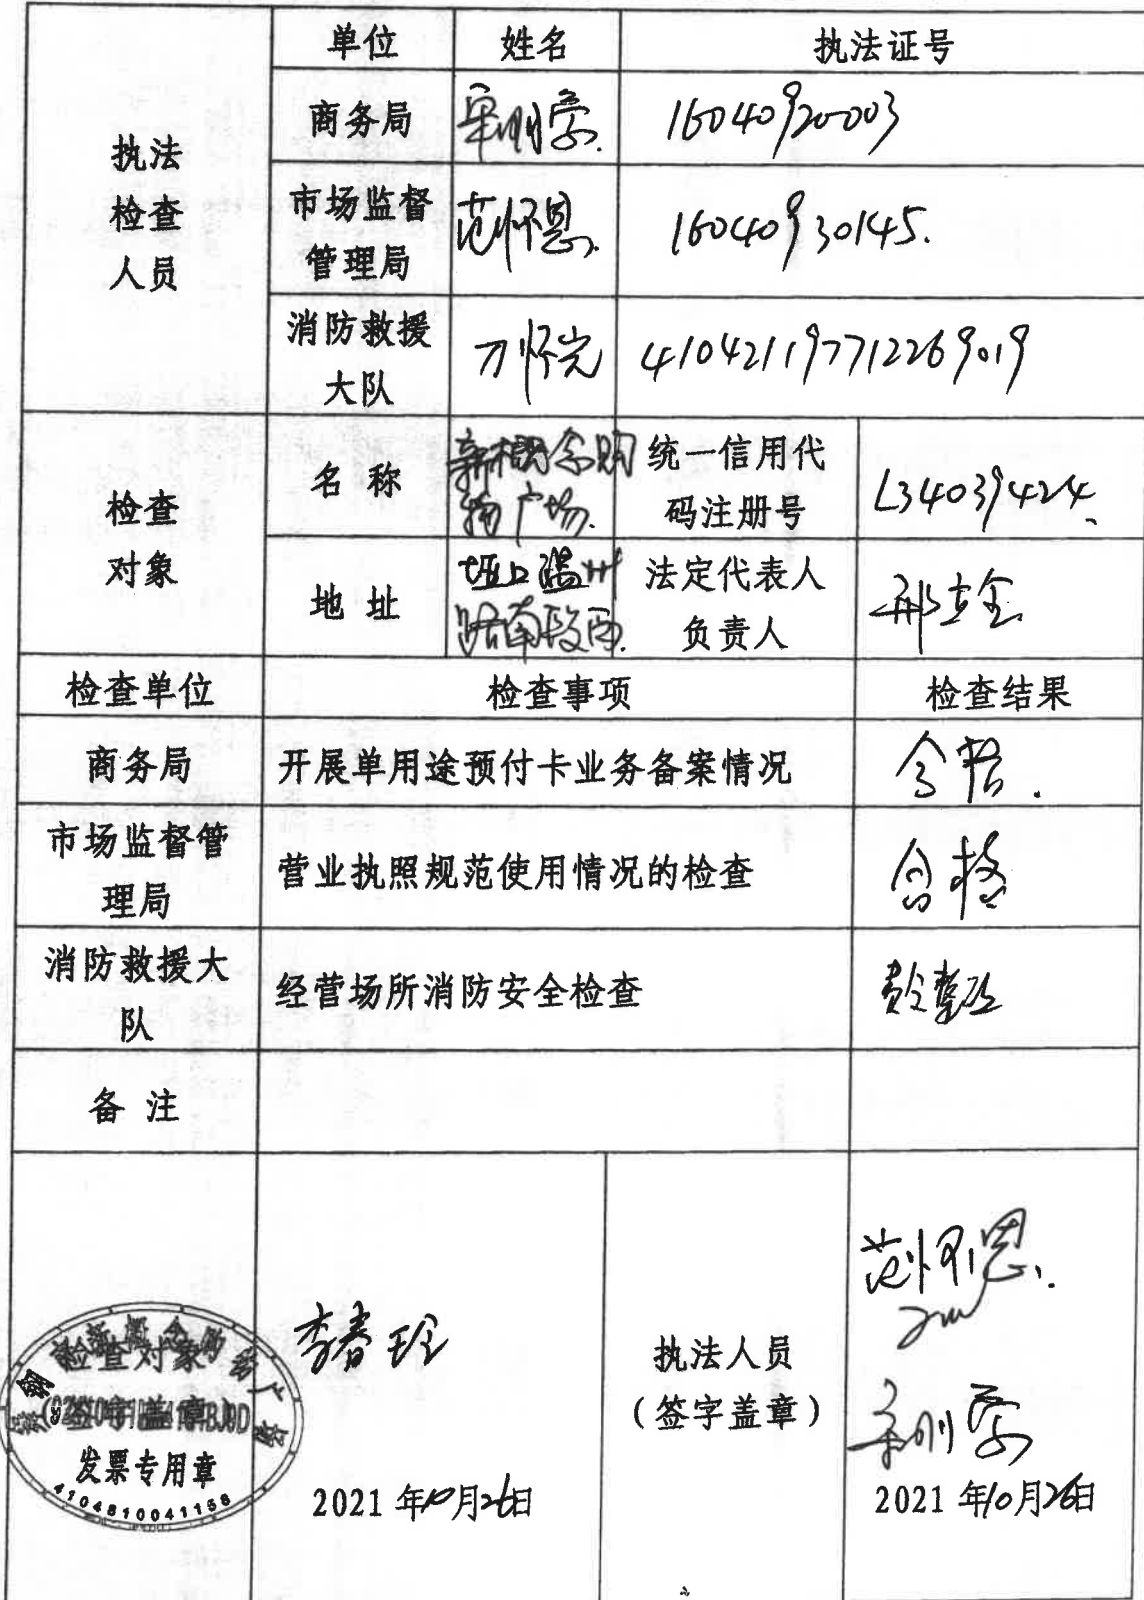 单位
姓名
执法证号
执法
检查
人员
商务局
16040920003
市场监督
管理局
范怀恩
16040930145.
消防救援
大队
刀怀光
410421197712269019
检查
对象
名 称
新概念购
物广场.
统一信用代
码注册号
L34039424
地 址
垭口温州
路南段西.
法定代表人
负责人
邢
检查单位
检查事项
检查结果
商务局
开展单用途预付卡业务备案情况
合格.
市场监督管
理局
营业执照规范使用情况的检查
合格
消防救援大
队
经营场所消防安全检查
责令整改
备 注
新概念购物广场
检查对象
签字盖章
发票专用章
4104810041158
李春玲
2021年10月26日
执法人员
(签字盖章)
范怀恩.
2021年10月26日